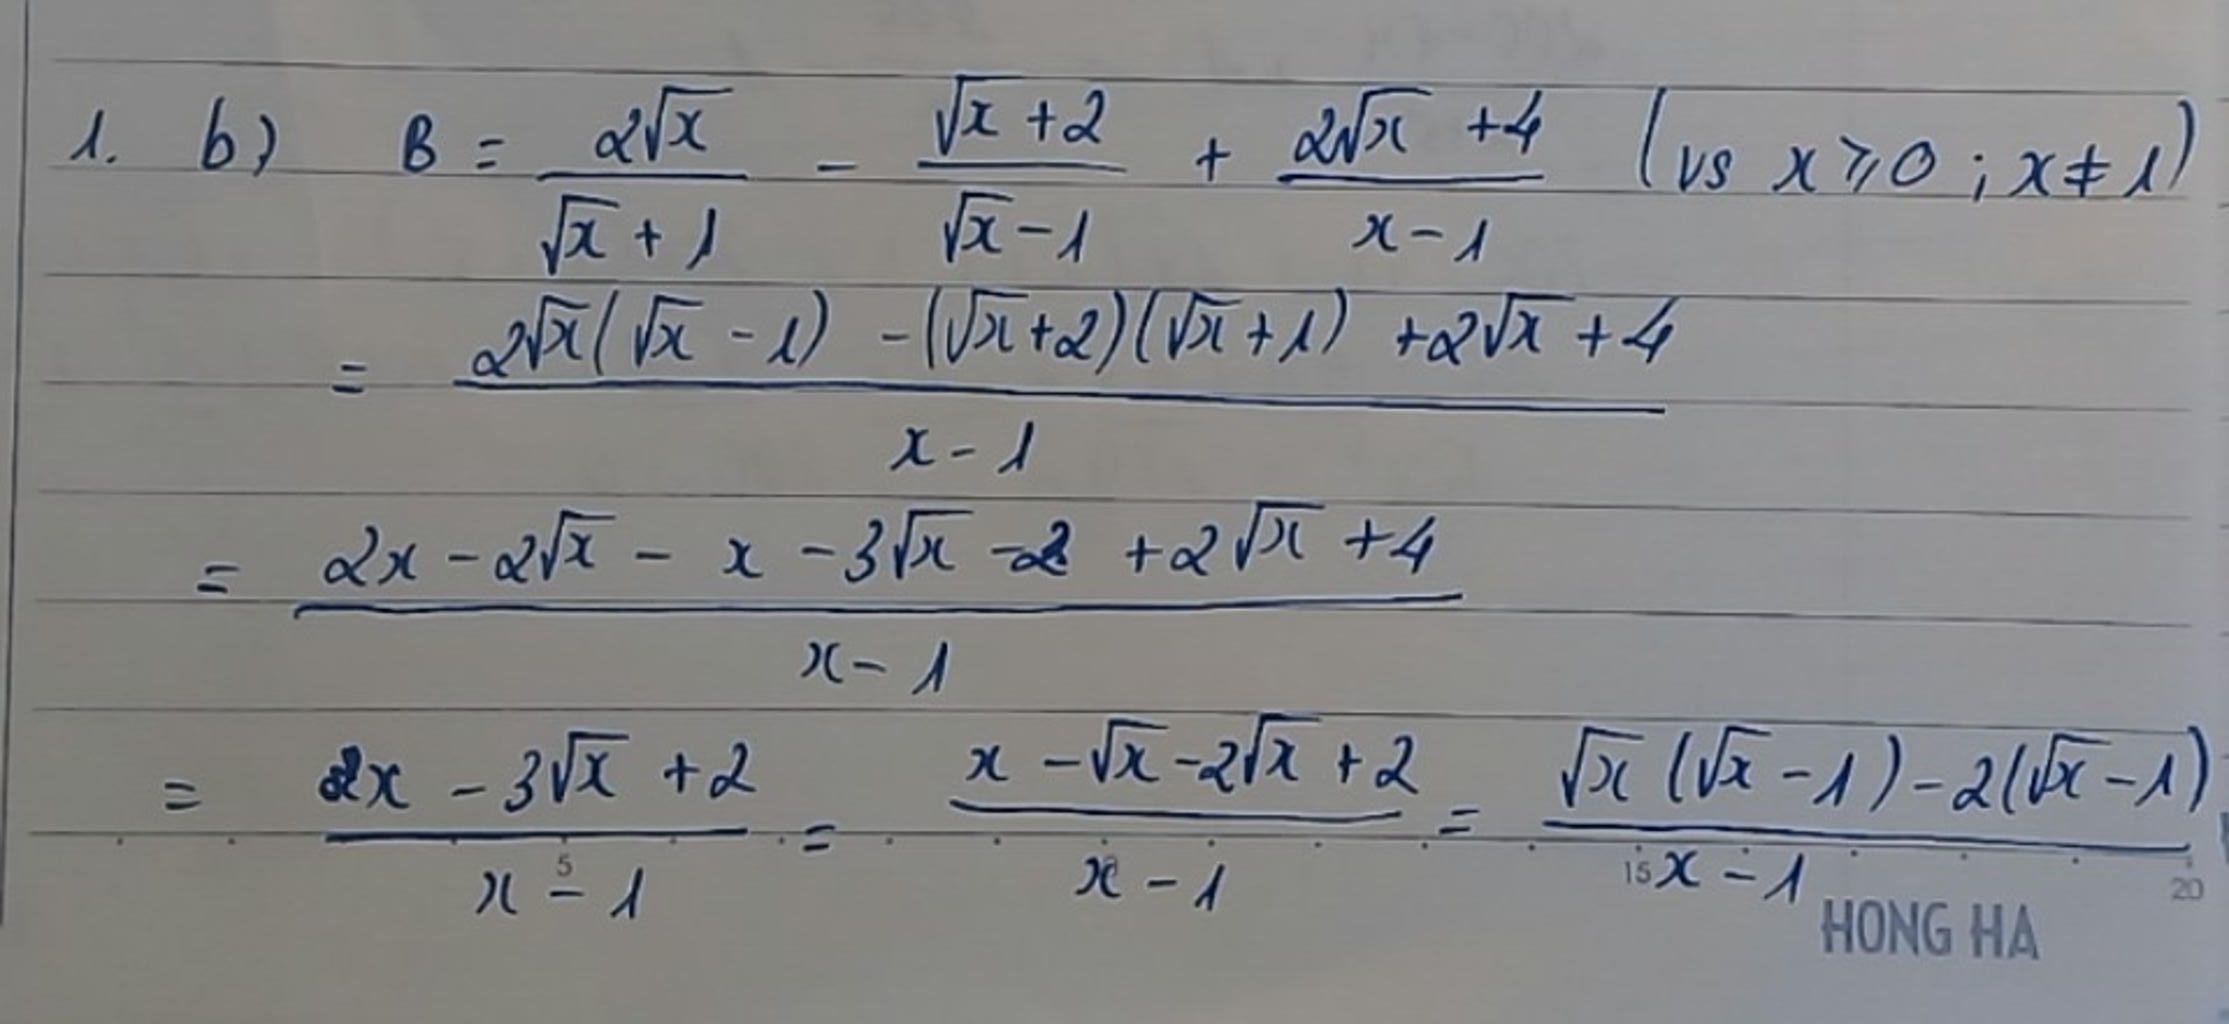 1. b) B = 2√x / (√x + 1) - (√x + 2) / (√x - 1) + (2√x + 4) / (x - 1) (vs x ⩾ 0 ; x ≠ 1)
= (2√x(√x - 1) - (√x + 2)(√x + 1) + 2√x + 4) / (x - 1)
= (2x - 2√x - x - 3√x - 2 + 2√x + 4) / (x - 1)
= (x - 3√x + 2) / (x - 1) = (x - √x - 2√x + 2) / (x - 1) = (√x (√x - 1) - 2(√x - 1)) / (x - 1)
5 15 20
HONG HA